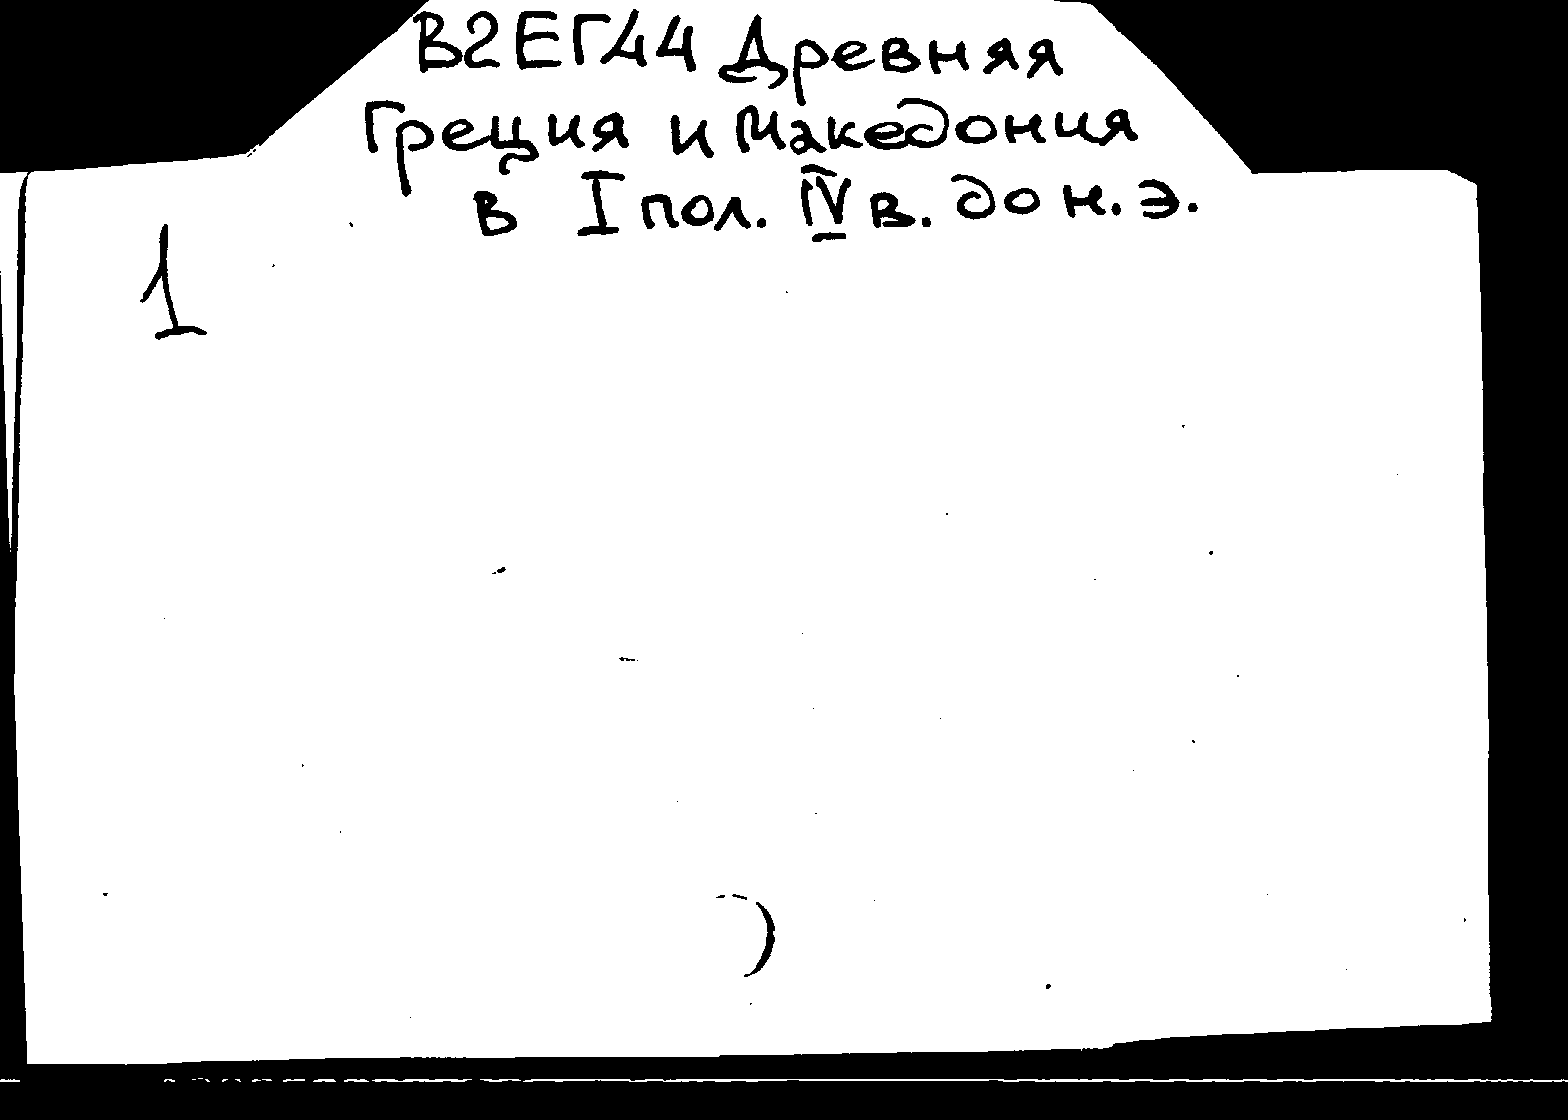 В2ЕГ44 Древняя
Греция и Македония
в I пол. IV в. до н.э.
1